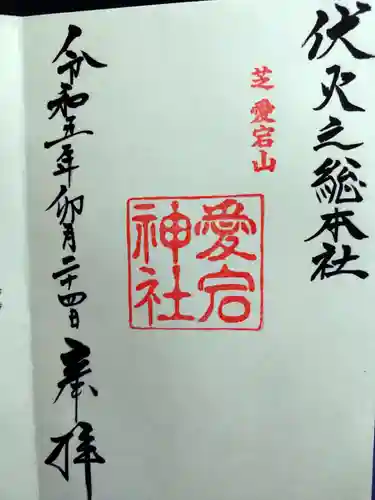 伏火之総本社
芝愛宕山
愛宕
神社
令和五年卯月二十四日奉拝